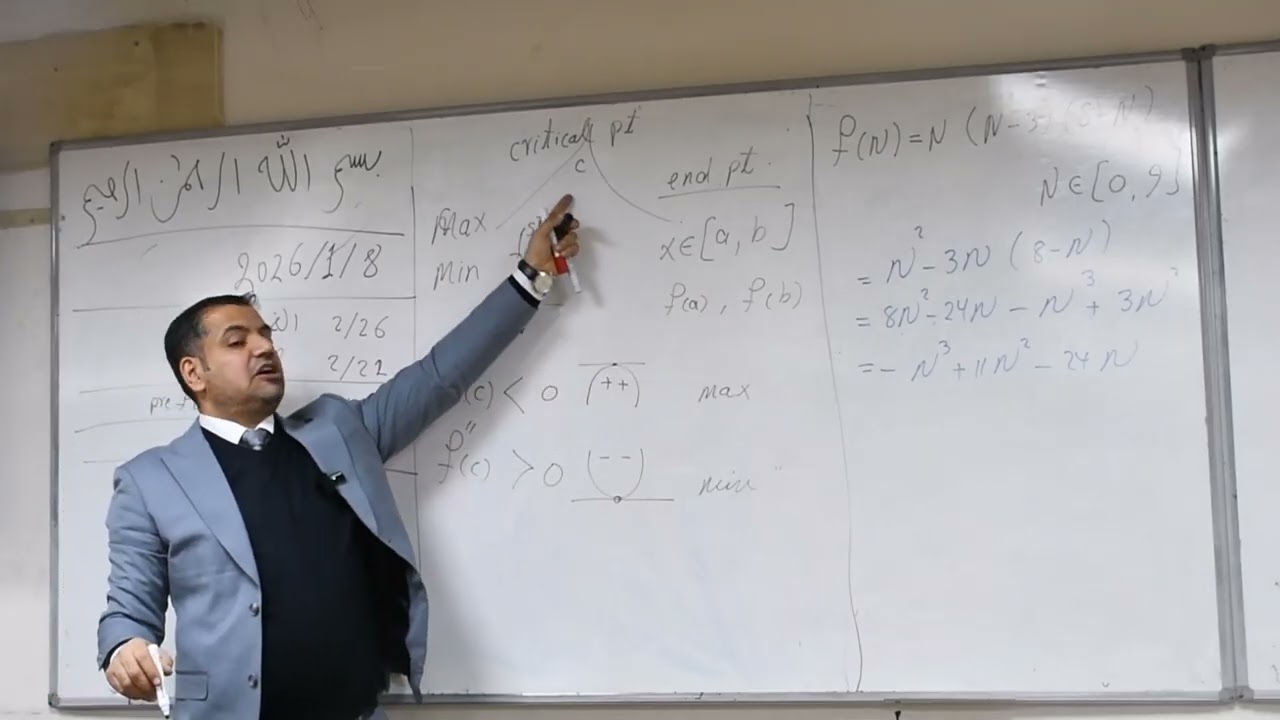 بسم الله الرحمن الرحيم
2026/1/8
2/26
2/21
critical pt
c
Max
Min
end pt.
x∈[a, b]
f(a), f(b)
(c) < 0 (++) max
f''(c) > 0 (--) min
f(N) = N (N-3) (8-N)
N∈[0, 9]
= N² - 3N (8-N)
= 8N² - 24N - N³ + 3N²
= - N³ + 11N² - 24N